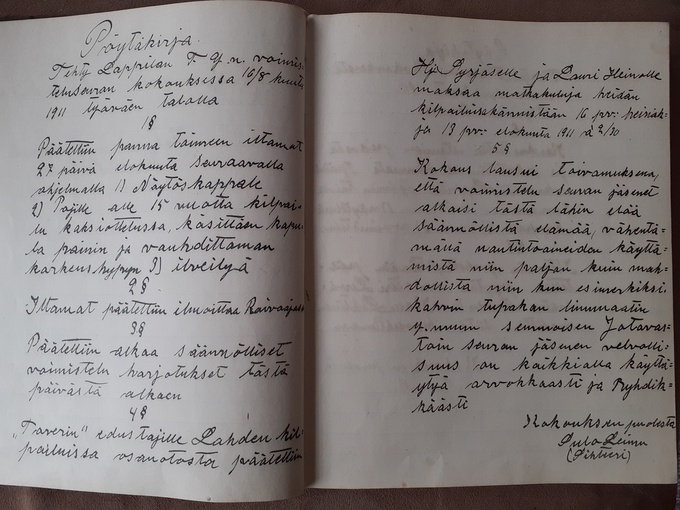 Pöytäkirja.
Tehty Lappilan T. Y.n. voimis-
teluseuran kokouksessa 16/8 kuuta
1911 työväen talolla
1§
Päätettiin panna toimeen iltamat
27 päivä elokuuta seuraavalla
ohjelmalla 1) Näytöskappale
2) Pojille alle 15 vuotta kilpai-
lu kaksiottelussa, käsittäen kapu-
la painin ja vauhdittoman
korkeushypyn 3) ilveilyä
2§
Iltamat päätettiin ilmoittaa Raivaajassa
3§
Päätettiin alkaa säännölliset
voimistelu harjotukset tästä
päivästä alkaen
4§
"Toverin" edustajille Lahden kil-
pailuissa osanotosta päätettiin
Hj. Syrjäselle ja Lauri Heinolle
maksaa matkakuluja heidän
kilpailuissa käynnistään 16 prv: heinäk-
ja 13 prv: elokuuta 1911 à 2/50
5§
Kokous lausui toivomuksena,
että voimistelu seuran jäsenet
alkaisi tästä lähin elää
säännöllistä elämää, vähentä=
mällä nautintoaineiden käyttä=
mistä niin paljon kuin mah=
dollista niin kuin esimerkiksi
kahvin tupakan limunaatin
y.muun semmoisen Jotavas=
toin seuran jäsenen velvolli=
suus on kaikkialla käyttä=
ytyä arvokkaasti ja Ryhdik=
käästi
Kokouksen puolesta
(Sihteeri)